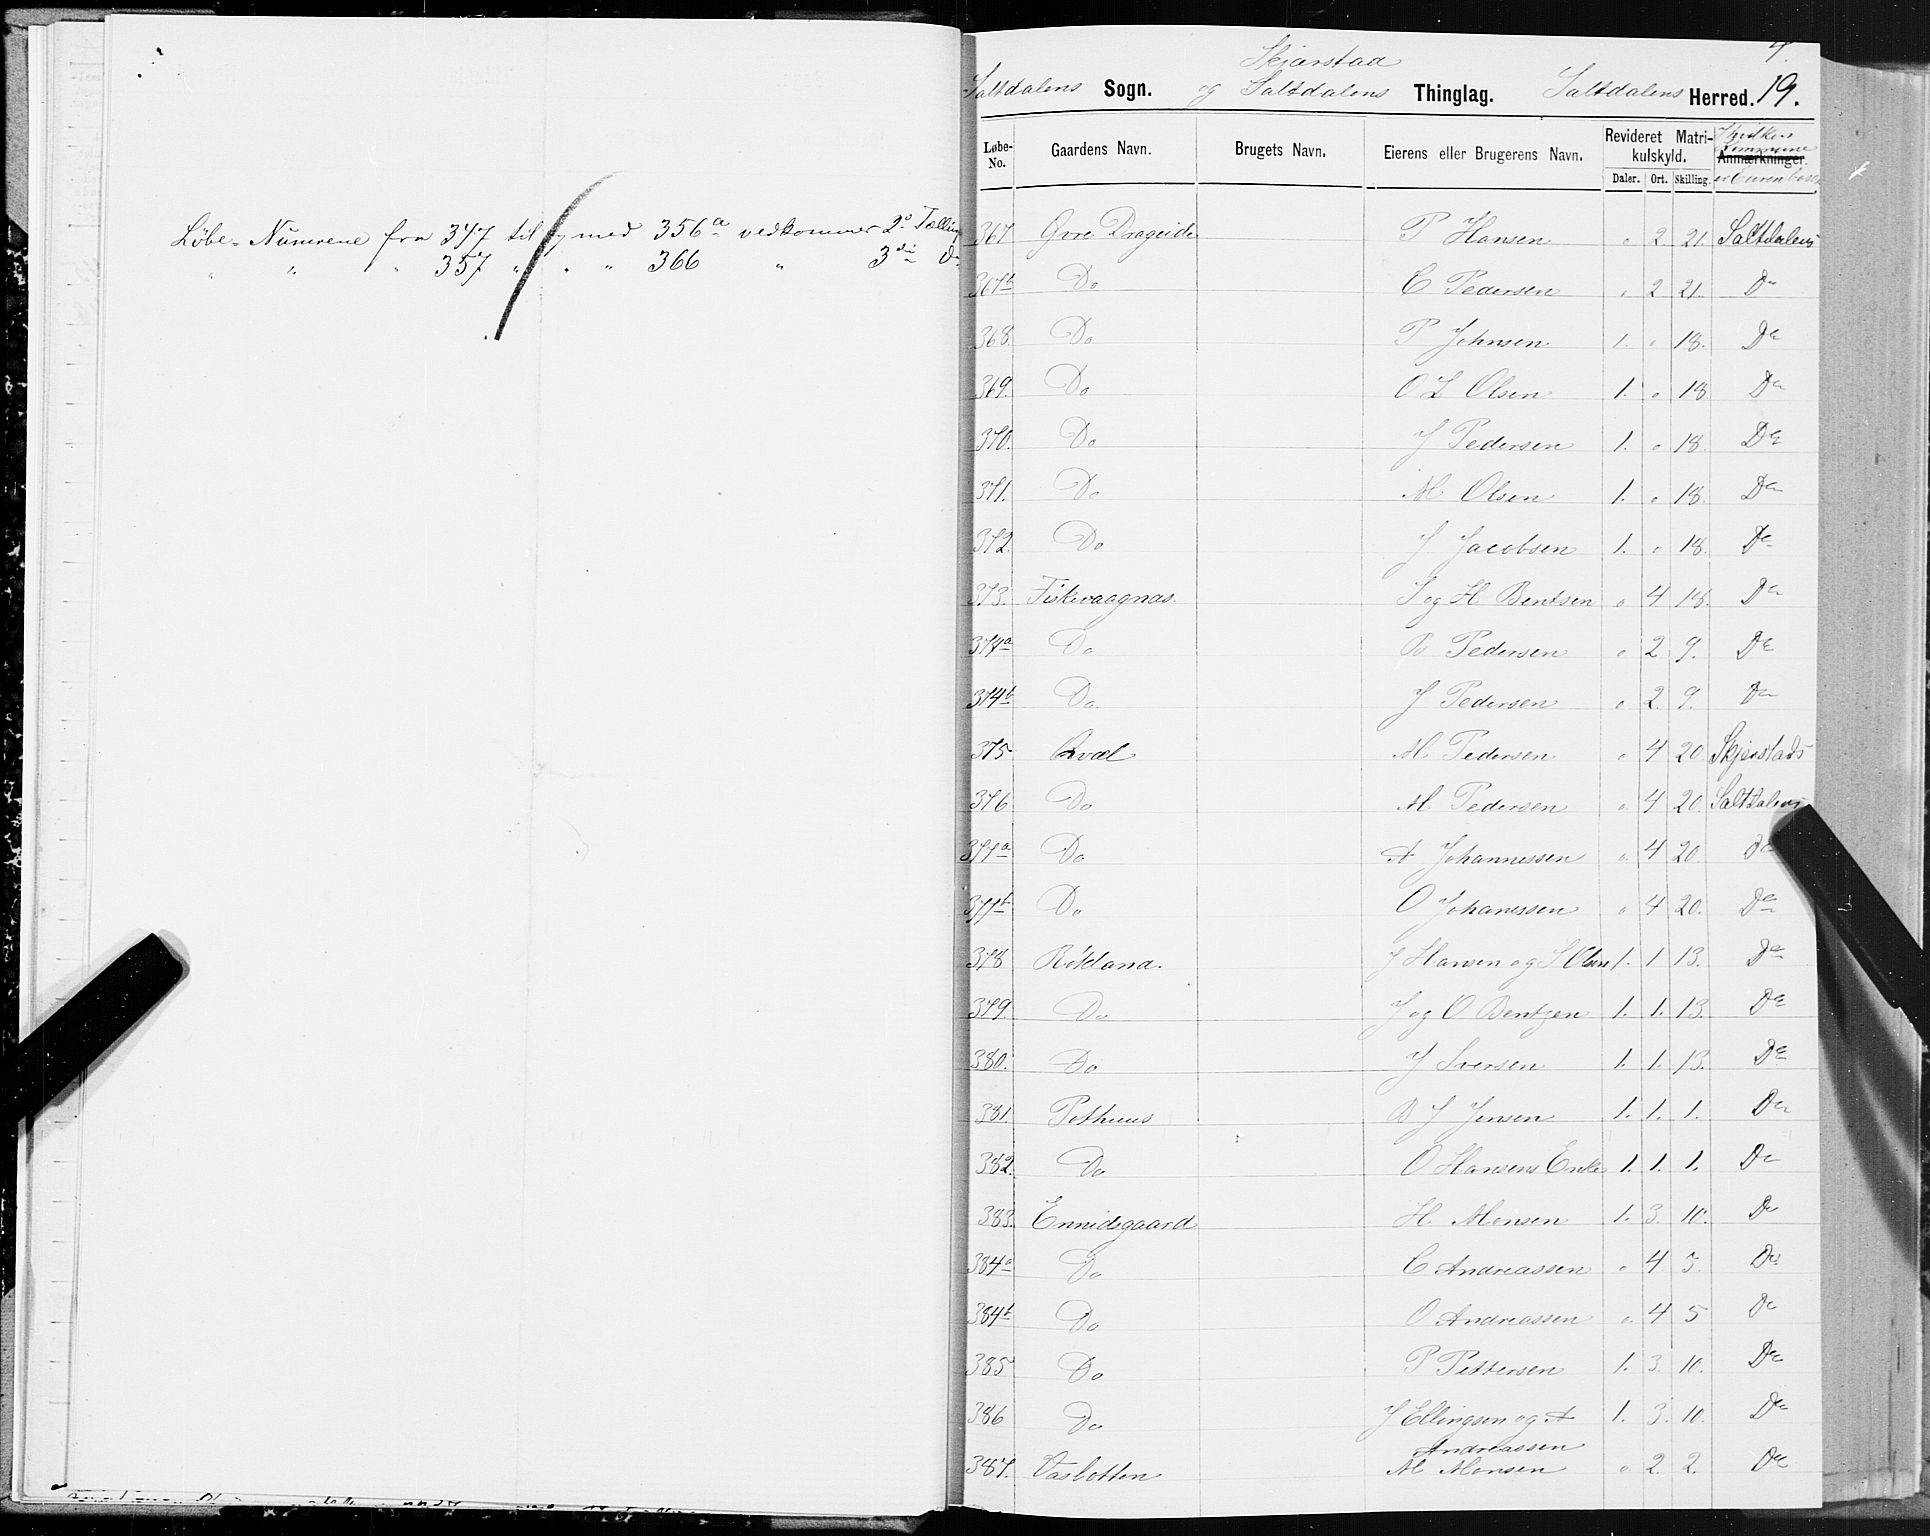 Løbe-Numrene fra 347 til og med 356a vedkommer 2o Tælling
" " " 357 " " " 366 " 3die Do
4.
Skjærstad
Saltdalens Sogn. og Saltdalens Thinglag. Saltdalens Herred. 19.
Løbe-No. Gaardens Navn. Brugets Navn. Eierens eller Brugerens Navn. Revideret Matrikulskyld. Anmærkninger.
Daler. Ort. Skilling.
367 Øvre Drageide P Hansen " 2 21. Saltdalens
367b Do C Pedersen " 2 21. Do
368. Do P Johnsen 1. " 18. Do
369. Do O L Olsen 1. " 18 Do
370. Do J Pedersen 1. " 18. Do
371. Do M Olsen 1. " 18. Do
372. Do J Jacobsen 1. " 18. Do
373. Fiskvaagnæs. I og H Bentsen " 4 18. Do
374a Do B Pedersen " 2 9. Do
374b Do. J Pedersen " 2. 9. Do
375 Qvæl M Pedersen " 4 20 Skjerstads
376 Do M Pedersen " 4 20. Saltdalens
377a Do A Johannessen " 4 20 Do
377b Do O Johanessen " 4 20. Do
378 Røkland. J Hansen og S Olsen 1. 1 13. Do
379. Do J og O Bentzen 1. 1. 13. Do
380. Do J Iversen 1. 1. 13. Do
381. Pothuus B J Jensen 1. 1. 1. Do
382. Do O Hansens Enke 1. 1. 1. Do
383. Ennidsgaard H Monsen 1. 3. 10. Do
384a Do C Andreassen " 4 5. Do
384b Do O Andreassen " 4 5 Do
385 Do P Pettersen 1. 3. 10. Do
386 Do J Ellingsen og A 1. 3. 10. Do
Andreassen
387. Vasbotten M Monsen " 2. 2. Do